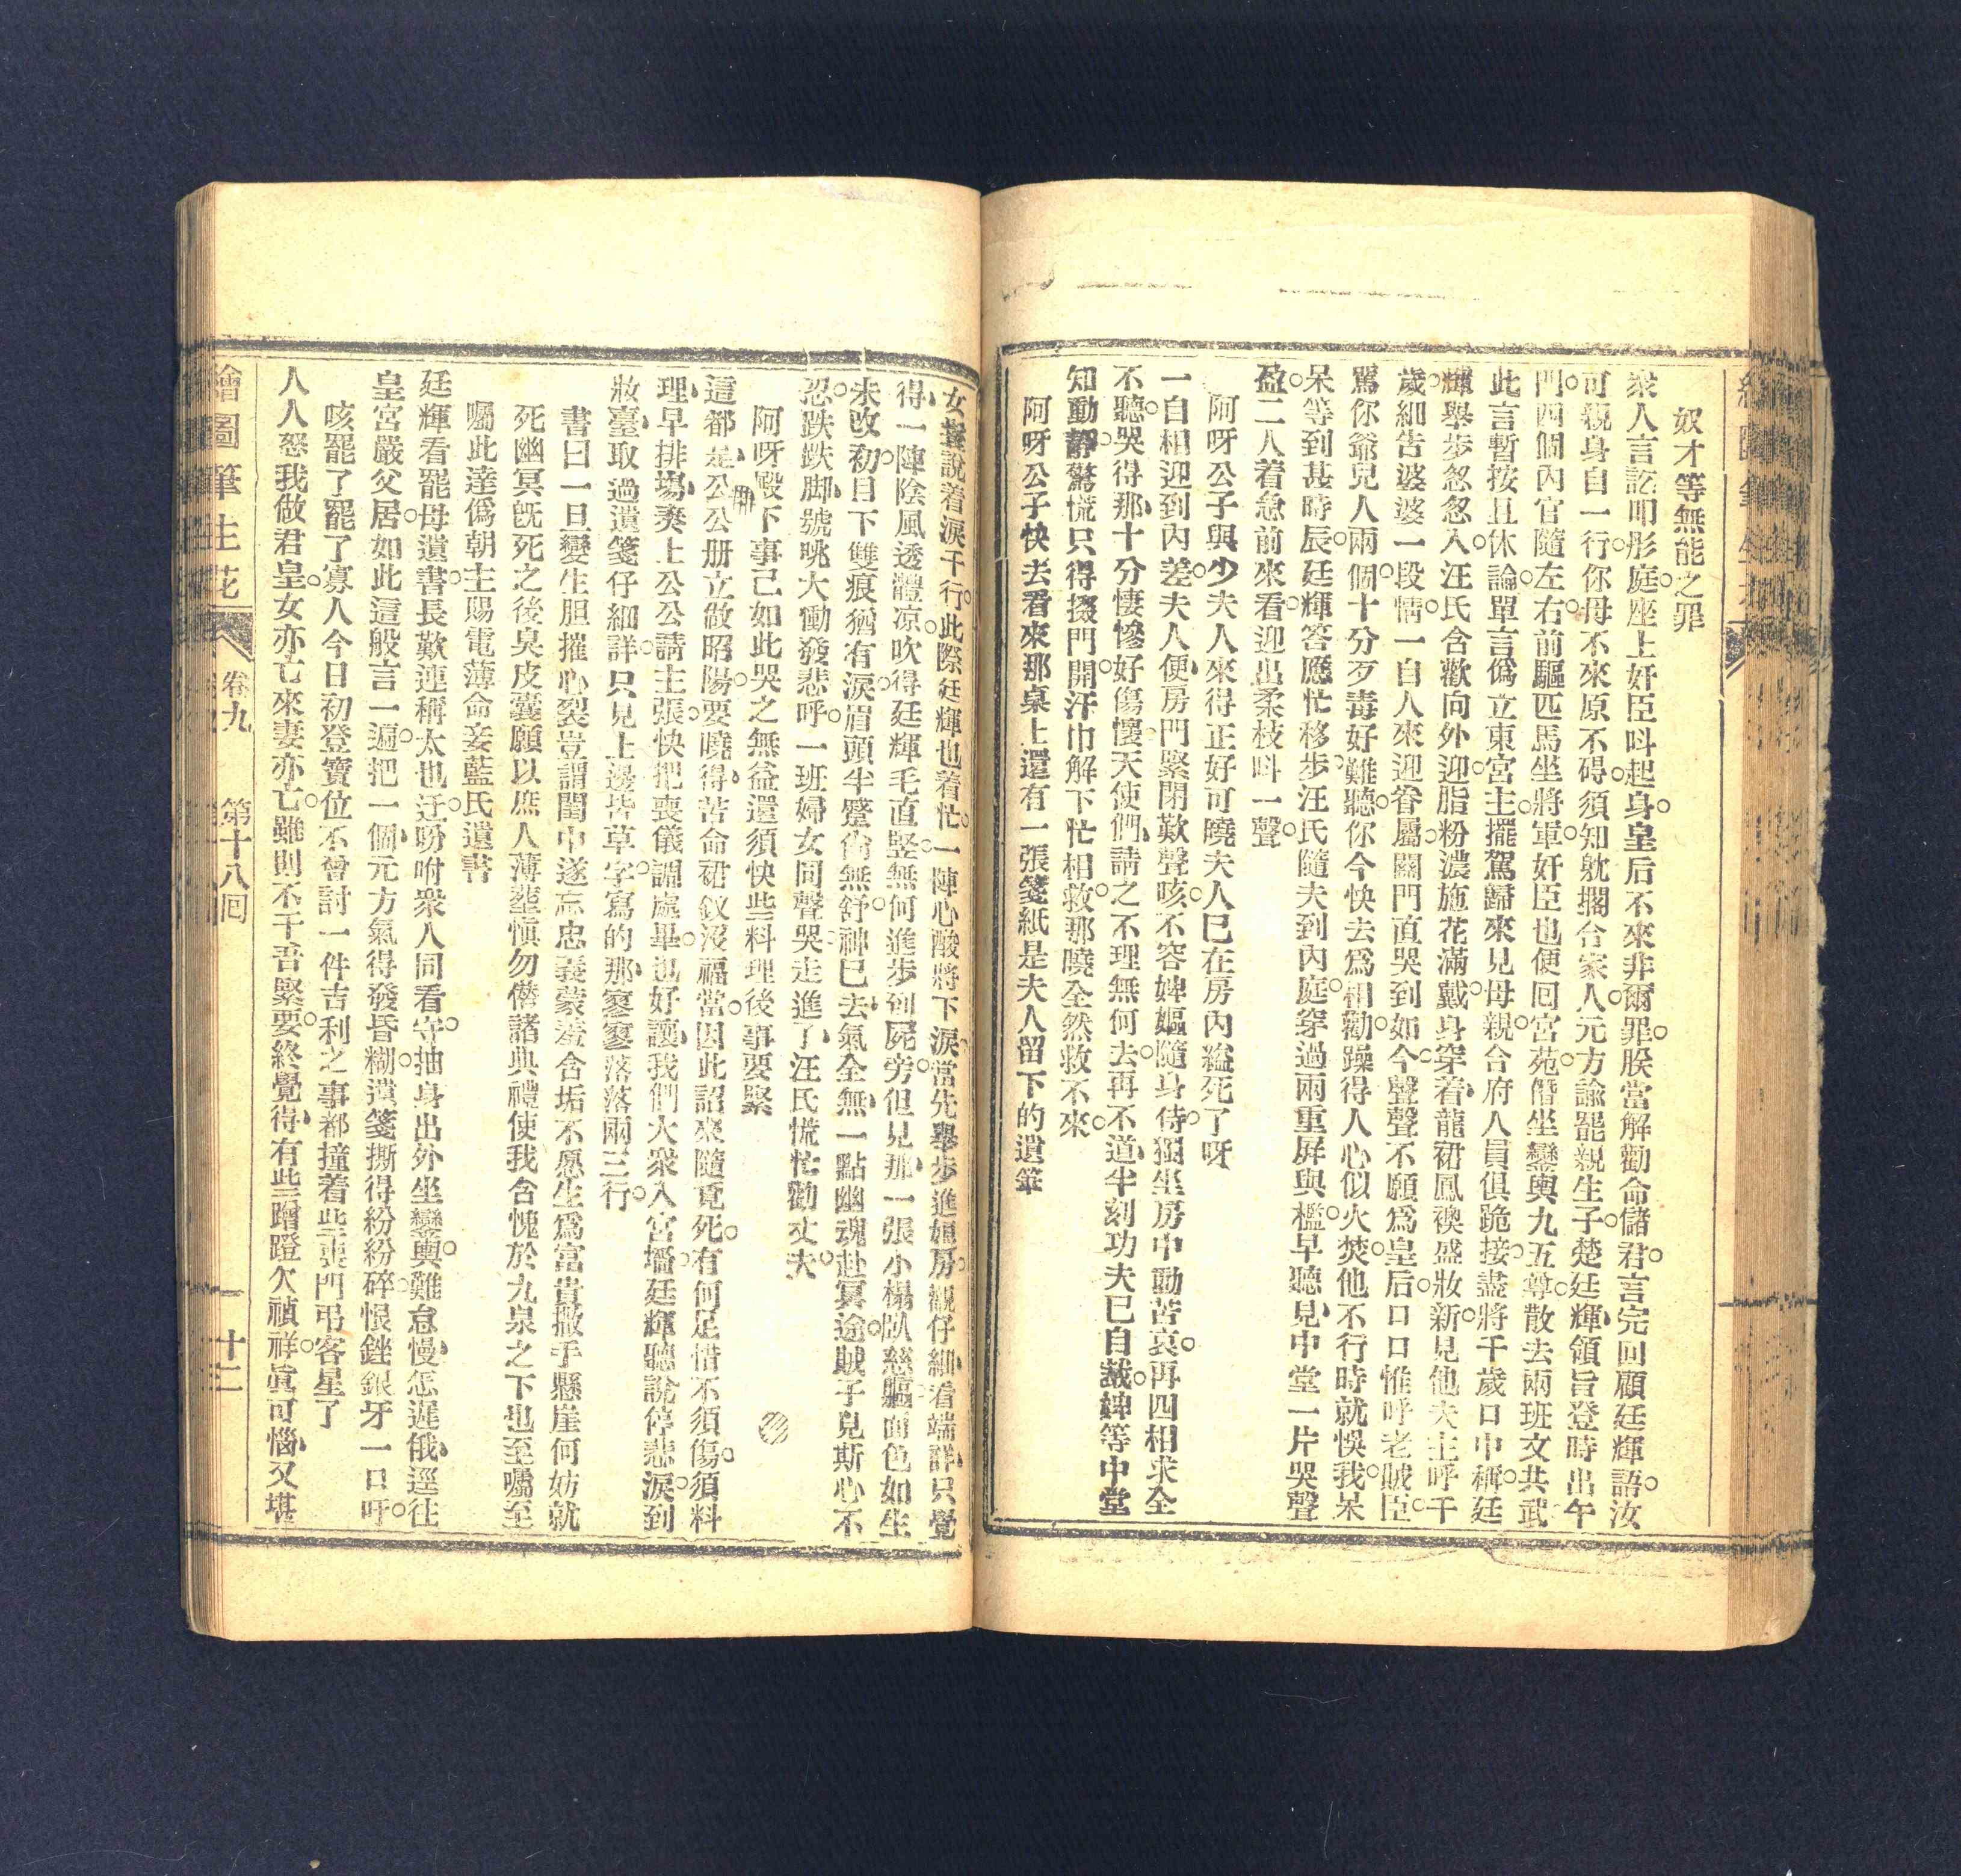 奴才等無能之罪
衆人言訖叩彤庭○座上奸臣呌起身○皇后不來非爾罪○朕當解勸命儲君○言完回顧廷輝語○汝
可親身自一行○你母不來原不碍○須知躭擱合家人○元方諭罷親生子○楚廷輝領旨登時出午
門○四個內官隨左右○前驅匹馬坐將軍○奸臣也便囘宮苑○僭坐鑾輿九五尊○散去兩班文共武
此言暫按且休論○單言僞立東宮主○擺駕歸來見母親○合府人員俱跪接○盡將千歲口中稱○廷
輝舉步忽忽入○汪氏含歡向外迎○脂粉濃施花滿戴○身穿着龍裙鳳襖盛妝新○見他夫主呼千
歲○細告婆婆一段情○一自人來迎眷屬○關門直哭到如今○聲聲不願爲皇后○口口惟呼老賊臣○
駡你爺兒人兩個○十分歹毒好難聽○你今快去爲相勸○躁得人心似火焚○他不行時就悞我○呆
呆等到甚時辰○廷輝答應忙移步○汪氏隨夫到內庭○穿過兩重屏與檻○早聽見中堂一片哭聲
盈○二人着急前來看○迎出柔枝呌一聲○
阿呀公子與少夫人來得正好可曉夫人已在房內縊死了呀
一自相迎到內差○夫人便房門緊閉歎聲咳○不容婢嫗隨身侍○獨坐房中動苦哀○再四相求全
不聽○哭得那十分悽慘好傷懷○天使們請之不理無何去○再不道半刻功夫已自裁○婢等中堂
知動靜○驚慌只得撥門開○汗巾解下忙相救○那曉全然救不來○
阿呀公子快去看來那桌上還有一張箋紙是夫人留下的遺筆
女婢說着淚千行○此際廷輝也着忙○一陣心酸將下淚○當先舉步進㛐房○觀仔細看端詳○只覺
得一陣陰風透體凉○吹得廷輝毛直竪○無何進步到屍旁○但見那一張小榻臥慈軀○面色如生
未改初○目下雙痕猶有淚○眉頭半蹙尙無舒○神已去氣全無○一點幽魂赴冥途○賊子見斯心不
忍○跌跌脚號咷大慟發悲呼○一班婦女同聲哭○走進了汪氏慌忙勸丈夫○
阿呀殿下事已如此哭之無益還須快些料理後事要緊
這都是公公册立做昭陽○要曉得苦命裙釵沒福當○因此詔來隨竟死○有何足惜不須傷○須料
理早排塲○奏上公公請主張○快把喪儀調處畢○也好讓我們大衆入宮墻○廷輝聽說停悲淚○到
妝臺取過遺箋仔細詳○只見上邊皆草字○寫的那寥寥落落兩三行○
書曰一旦變生胆摧心裂豈謂閨中遂忘忠義蒙羞含垢不愿生爲富貴撒手懸崖何妨就
死幽冥旣死之後臭皮囊願以庶人薄塟愼勿僭諸典禮使我含愧於九泉之下也至囑至
囑此達僞朝主賜電薄命妾藍氏遺書
廷輝看罷母遺書○長歎連稱太也迂○吩咐衆人同看守○抽身出外坐鑾輿○難怠慢怎遲俄○逕往
皇宮嚴父居○如此這般言一遍○把一個元方氣得發昏糊○遺箋撕得紛紛碎○恨銼銀牙一口呼○
咳罷了罷了寡人今日初登寶位不曾討一件吉利之事都撞着些喪門弔客星了
人人怒我做君皇○女亦亡來妻亦亡○雖則不干吾緊要○終覺得有些蹭蹬欠禎祥○眞可惱又堪
繪圖筆生花 卷九 第十八囘 十二